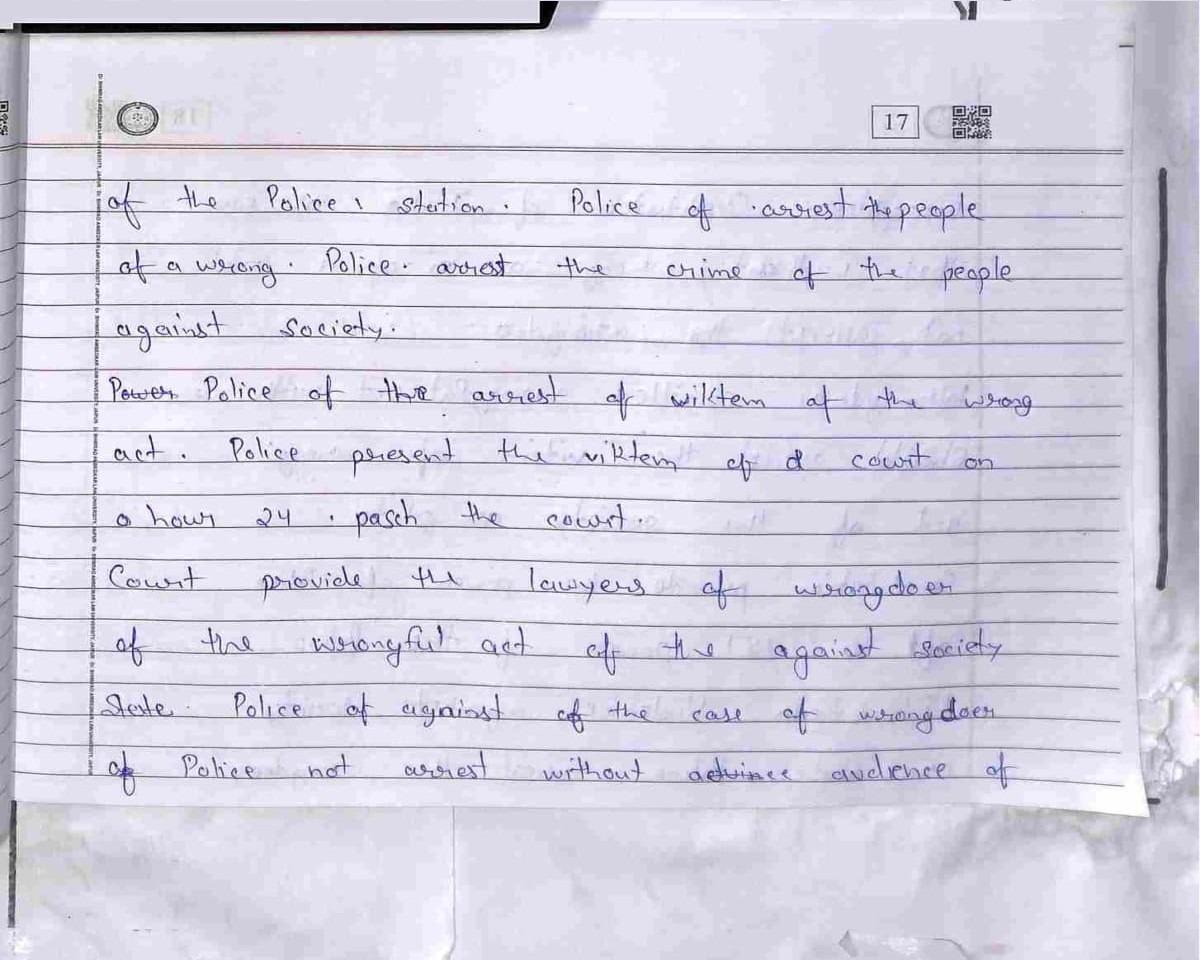 17
of the Police. station. Police of .arrest the people
of a wrong. Police. arrest the crime of the people
against society.
Power Police of the arrest of wiktem of the wrong
act. Police present the viktem of d court on
a hour 24 . pasch the court.
Court provide the lawyers of wrongdoer
of the wrongful act of the against society
State. Police of against of the case of wrongdoer
of Police not arrest without advince audience of